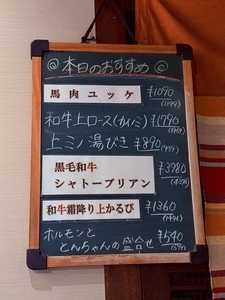 本日のおすすめ
馬肉 ユッケ ¥1090
(1199)
和牛上ロース(カイノミ) ¥1790
上ミノ 湯びき ¥890
黒毛和牛
シャトーブリアン ¥3980
和牛霜降り上かるび ¥1360
ホルモンと
とんちゃんの盛合せ ¥540